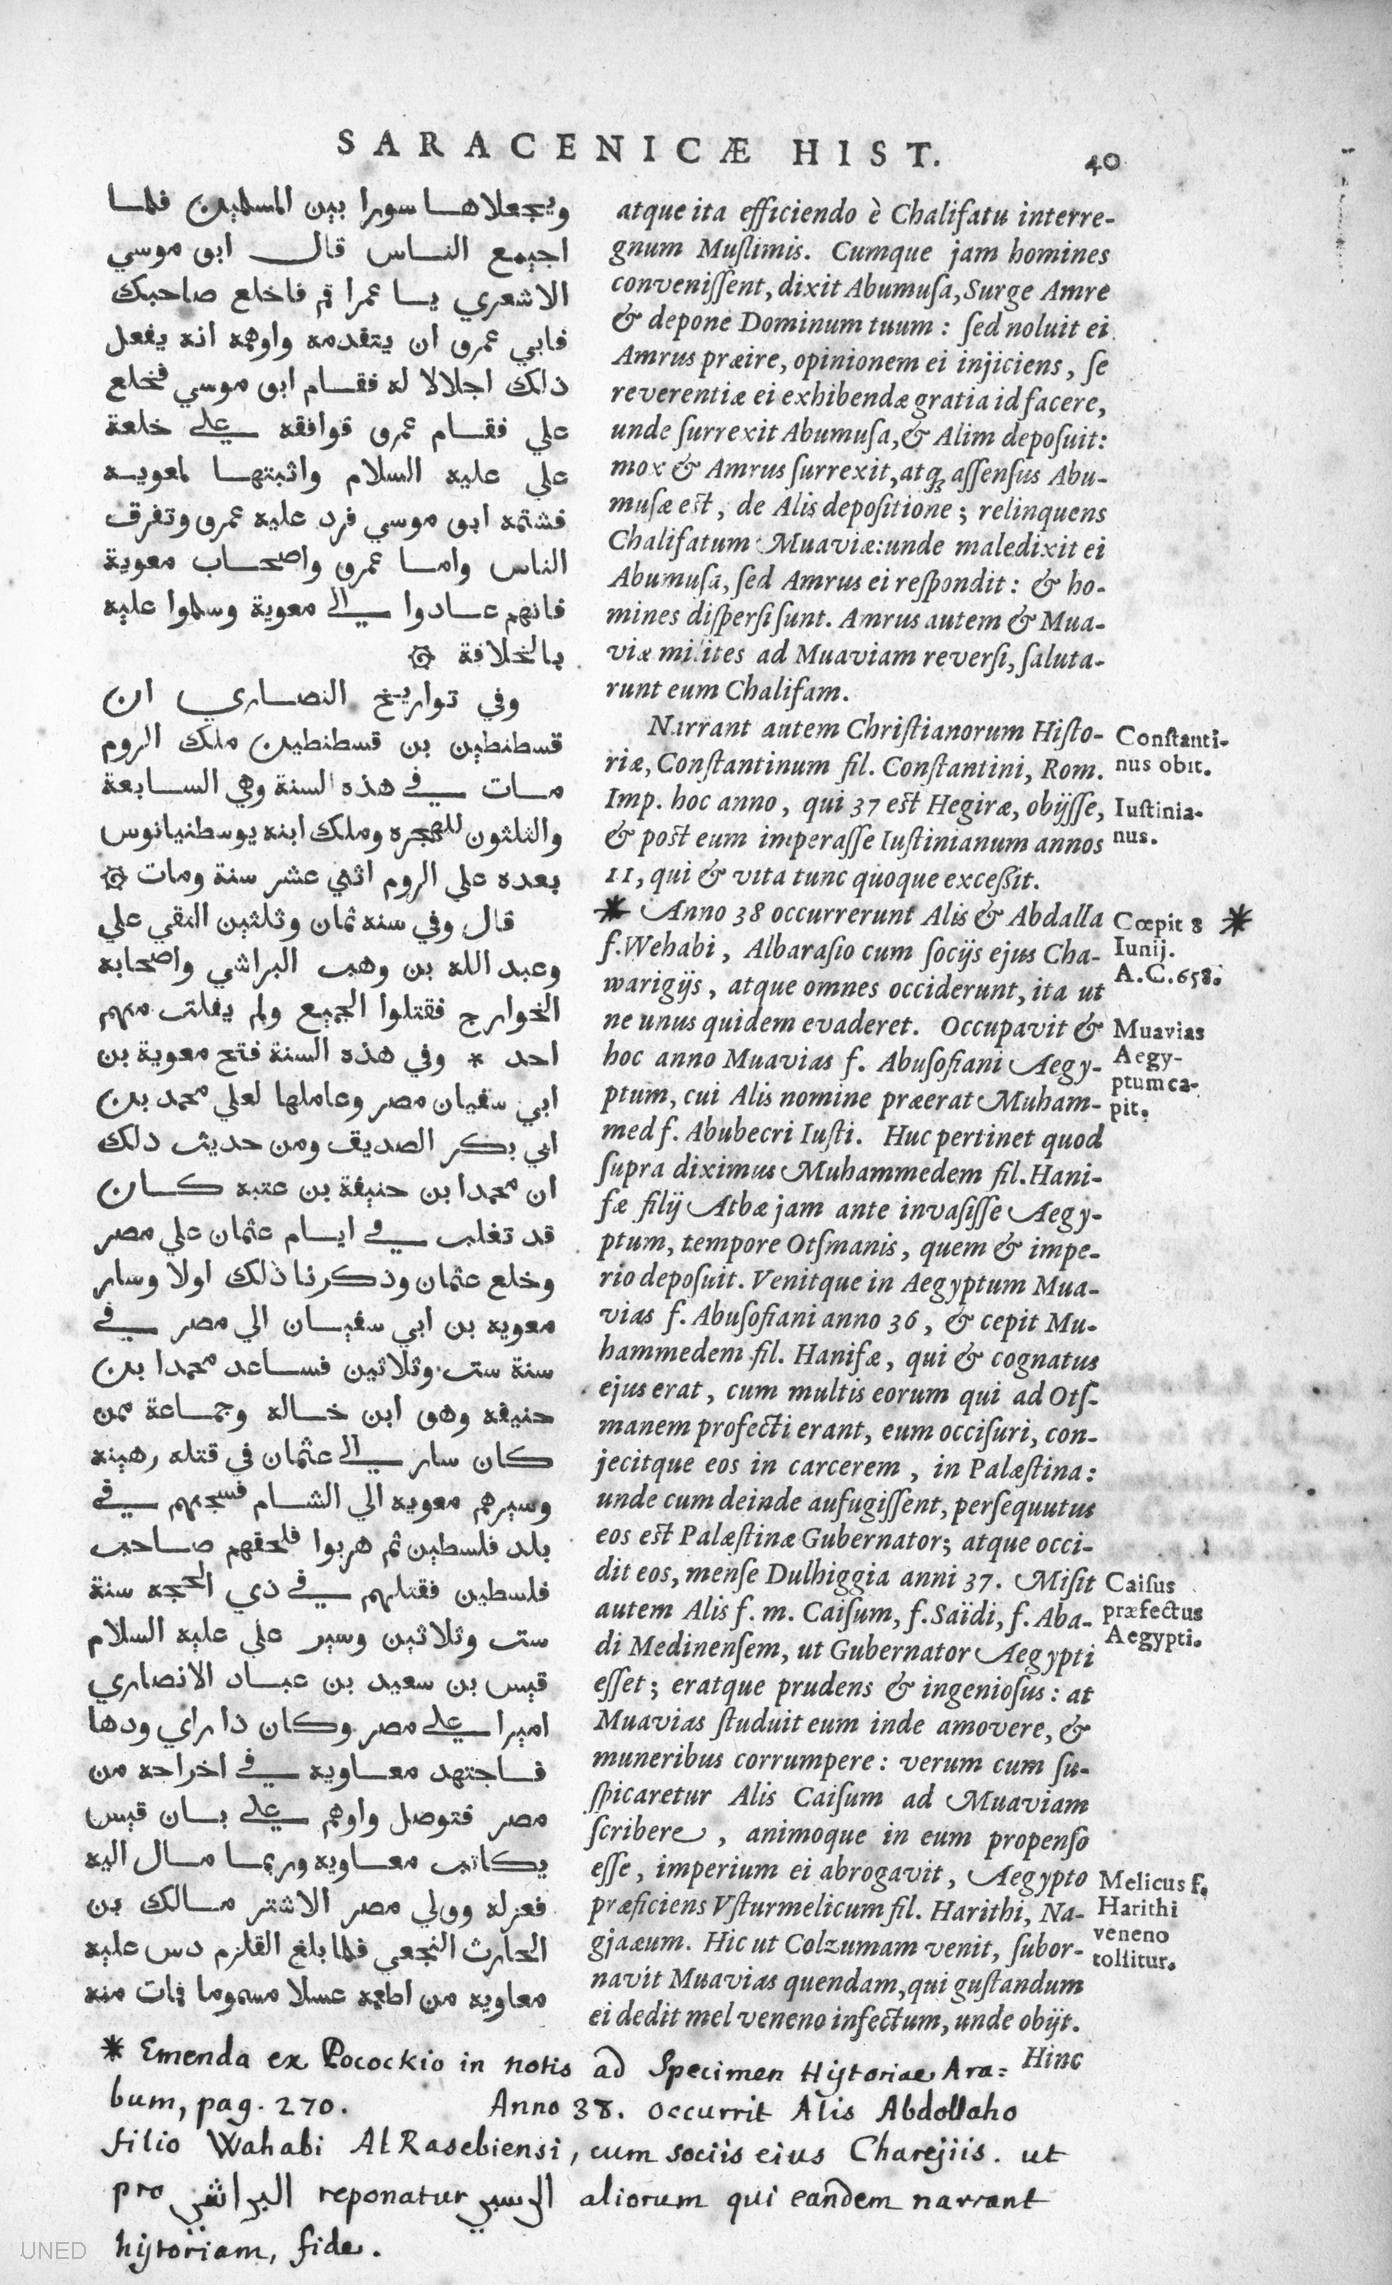 SARACENICÆ HIST. 40
ويجعلاها سورا بين المسلمين فلما
اجيمع الناس قال ابو موسي
الاشعري يا عمرا قم فاخلع صاحبك
فابي عمرو ان يتقدمه واوهمه انه يفعل
ذلك اجلالا له فقام ابو موسي فخلع
علي فقام عمرو فوافقه علي خلعة
علي عليه السلام واثبتها لمعويه
فشتمه ابو موسي فرد عليه عمرو وتفرق
الناس واما عمرو واصحاب معوية
فانهم عادوا الي معوية وسلموا عليه
بالخلافة
وفي تواريخ النصاري ان
قسطنطين بن قسطنطين ملك الروم
مات في هذه السنة وهي السابعة
والثلثون للهجره وملك ابنه يوسطنيانوس
بعده علي الروم اثني عشر سنة ومات
قال وفي سنه ثمان وثلثين التقي علي
وعبد الله بن وهب البراشي واصحابه
الخوارج فقتلوا الجميع ولم يفلت منهم
احد * وفي هذه السنة فتح معوية بن
ابي سفيان مصر وعاملها لعلي محمد بن
ابي بكر الصديق ومن حديث ذلك
ان محمدا بن حنيفة بن عتبه كان
قد تغلب في ايام عثمان علي مصر
وخلع عثمان وذكرنا ذلك اولا وسار
معويه بن ابي سفيان الي مصر في
سنة ست وثلاثين فساعد محمدا بن
حنيفه وهو ابن خاله وجماعة ممن
كان سار الي عثمان في قتله رهينه
وسيرهم معويه الي الشام فسجنهم في
بلد فلسطين ثم هربوا فلحقهم صاحب
فلسطين فقتلهم في ذي الحجه سنة
ست وثلاثين وسير علي عليه السلام
قيس بن سعيد بن عباد الانصاري
اميرا علي مصر وكان ذا راي ودها
فاجتهد معاويه في اخراجه من
مصر فتوصل واوهم علي بان قيس
يكاتب معاويه وربما مال اليه
فعزله وولي مصر الاشتر مالك بن
الحارث النجعي فلما بلغ القلزم دس عليه
معاويه من اطعمه عسلا مسموما فمات منه
atque ita efficiendo è Chalifatu interre-
gnum Muslimis. Cumque jam homines
convenissent, dixit Abumusa, Surge Amre
& depone Dominum tuum : sed noluit ei
Amrus præire, opinionem ei injiciens, se
reverentiæ ei exhibendæ gratia id facere,
unde surrexit Abumusa, & Alim deposuit:
mox & Amrus surrexit, atq; assensus Abu-
musæ est, de Alis depositione; relinquens
Chalifatum Muaviæ: unde maledixit ei
Abumusa, sed Amrus ei respondit: & ho-
mines dispersi sunt. Amrus autem & Mua-
viæ milites ad Muaviam reversi, saluta-
runt eum Chalifam.
Narrant autem Christianorum Histo-
riæ, Constantinum fil. Constantini, Rom.
Imp. hoc anno, qui 37 est Hegiræ, obijsse,
& post eum imperasse Iustinianum annos
11, qui & vita tunc quoque excessit.
* Anno 38 occurrerunt Alis & Abdalla
f. Wehabi, Albarasio cum socijs ejus Cha-
warigijs, atque omnes occiderunt, ita ut
ne unus quidem evaderet. Occupavit &
hoc anno Muavias f. Abusofiani Aegy-
ptum, cui Alis nomine præerat Muham-
med f. Abubecri Iusti. Huc pertinet quod
supra diximus Muhammedem fil. Hani-
fæ filij Atbæ jam ante invasisse Aegy-
ptum, tempore Otsmanis, quem & impe-
rio deposuit. Venitque in Aegyptum Mua-
vias f. Abusofiani anno 36, & cepit Mu-
hammedem fil. Hanifæ, qui & cognatus
ejus erat, cum multis eorum qui ad Ots-
manem profecti erant, eum occisuri, con-
jecitque eos in carcerem, in Palæstina:
unde cum deinde aufugissent, persequutus
eos est Palæstinæ Gubernator; atque occi-
dit eos, mense Dulhiggia anni 37. Misit
autem Alis f. m. Caisum, f. Saïdi, f. Aba-
di Medinensem, ut Gubernator Aegypti
esset; eratque prudens & ingeniosus: at
Muavias studuit eum inde amovere, &
muneribus corrumpere: verum cum su-
spicaretur Alis Caisum ad Muaviam
scribere, animoque in eum propenso
esse, imperium ei abrogavit, Aegypto
præficiens Vsturmelicum fil. Harithi, Na-
gjaæum. Hic ut Colzumam venit, subor-
navit Muavias quendam, qui gustandum
ei dedit mel veneno infectum, unde obijt.
Hinc
Constanti-
nus obit.
Iustinia-
nus.
Cœpit 8 *
Iunij.
A.C.658.
Muavias
Aegy-
ptum ca-
pit.
Caisus
præfectus
Aegypti.
Melicus f.
Harithi
veneno
tollitur.
* Emenda ex Pocockio in notis ad Specimen Historiae Ara=
bum, pag. 270. Anno 38. occurrit Alis Abdollaho
filio Wahabi AlRasebiensi, cum sociis eius Charejiis. ut
pro البراشي reponatur الرسبي aliorum qui eandem narrant
historiam, fide.
UNED